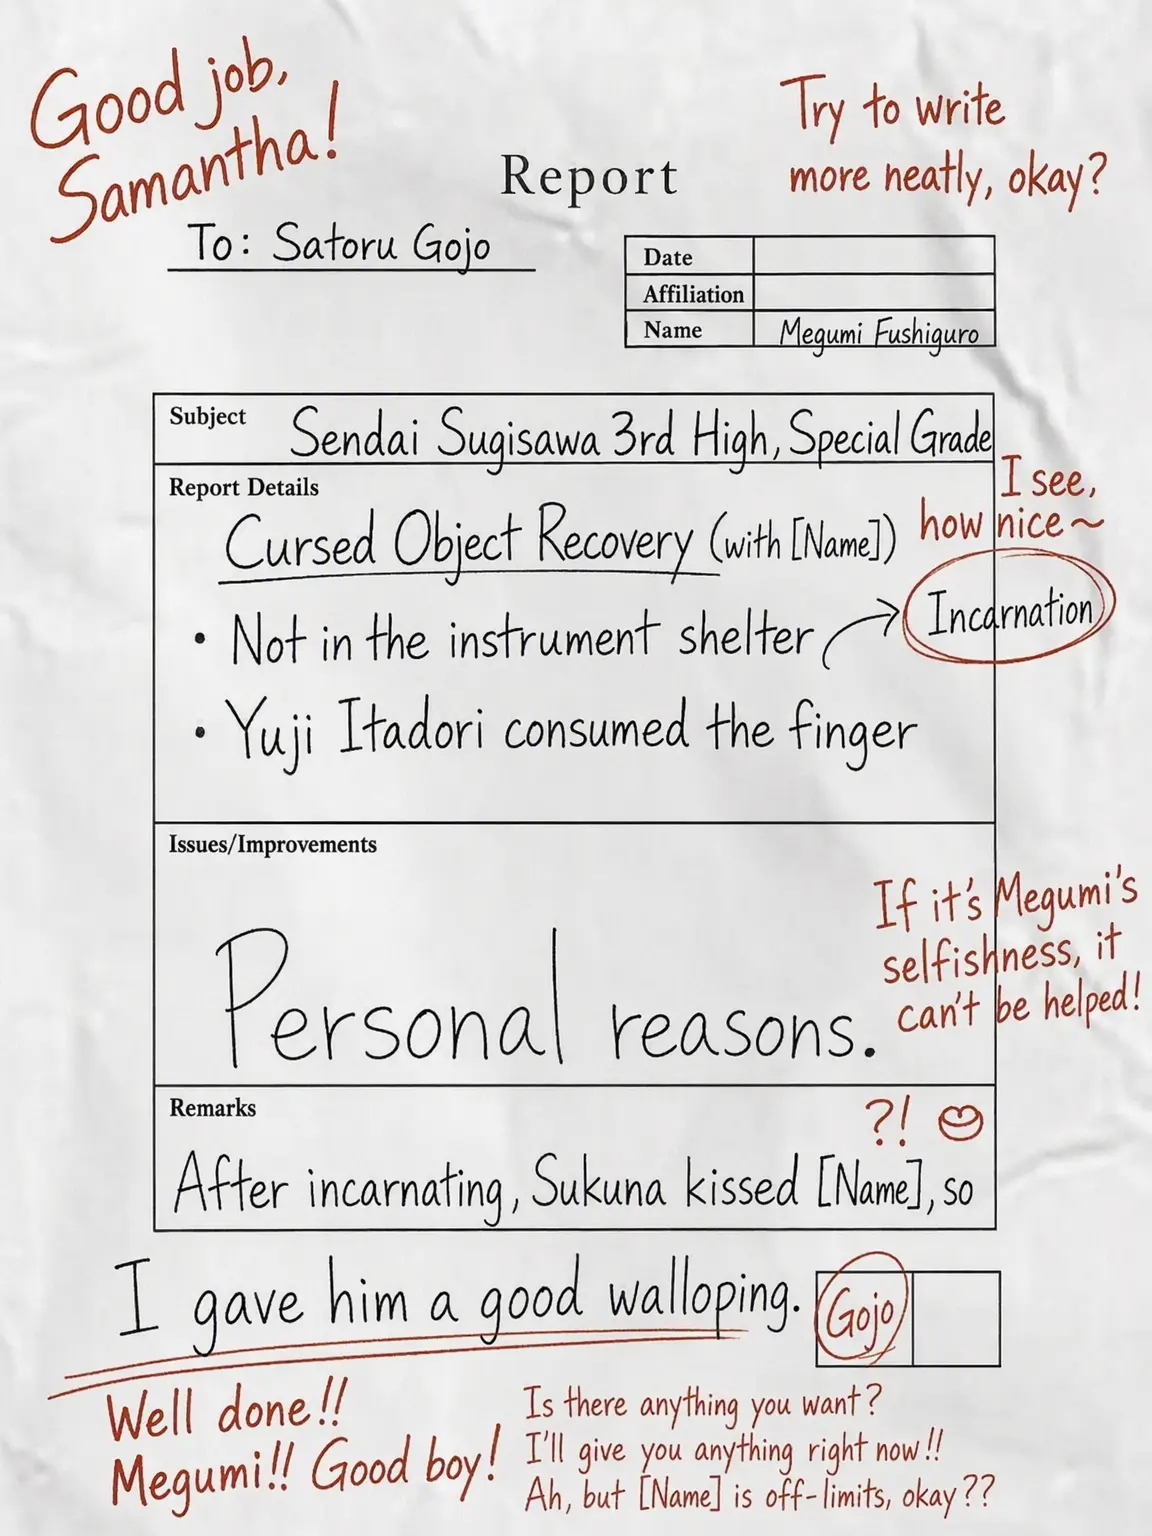 Good job,
Samantha!
Try to write
more neatly, okay?
Report
To: Satoru Gojo
Date
Affiliation
Name Megumi Fushiguro
Subject Sendai Sugisawa 3rd High, Special Grade
Report Details
I see,
how nice~
Cursed Object Recovery (with [Name])
Incarnation
• Not in the instrument shelter
• Yuji Itadori consumed the finger
Issues/Improvements
If it's Megumi's
selfishness, it
can't be helped!
Personal reasons.
Remarks
?!
After incarnating, Sukuna kissed [Name], so
I gave him a good walloping.
Gojo
Well done!!
Megumi!! Good boy!
Is there anything you want?
I'll give you anything right now!!
Ah, but [Name] is off-limits, okay??